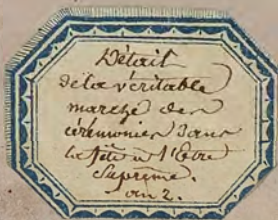 Détail
de la véritable
marche des
cérémonies dans
la fête à l'Etre
Suprême.
an 2.